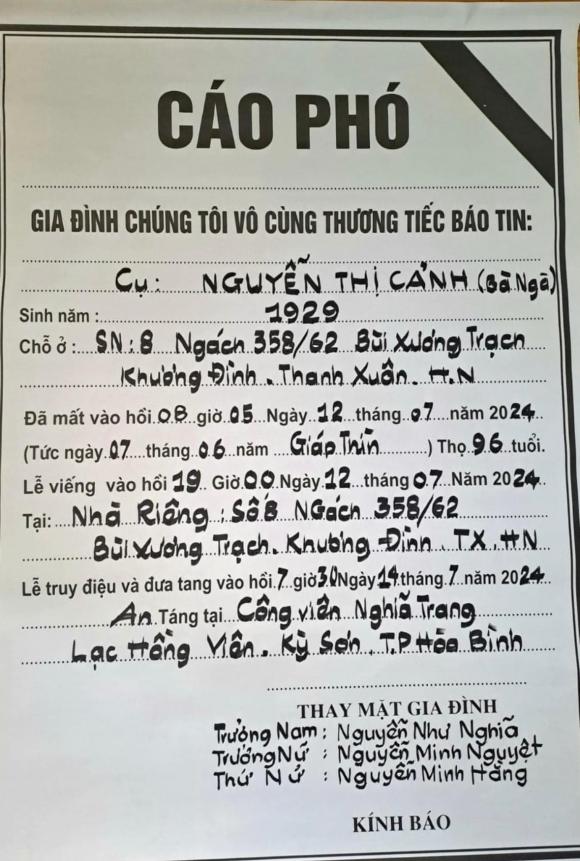 CÁO PHÓ
GIA ĐÌNH CHÚNG TÔI VÔ CÙNG THƯƠNG TIẾC BÁO TIN:
Cụ: NGUYỄN THỊ CẢNH (Bà Ngã)
Sinh năm: 1929
Chỗ ở: SN: 8 Ngách 358/62 Bùi Xương Trạch
Khương Đình. Thanh Xuân. H.N
Đã mất vào hồi 08 giờ 05 Ngày 12 tháng 07 năm 2024
(Tức ngày 07 tháng 06 năm Giáp Thìn) Thọ 96 tuổi.
Lễ viếng vào hồi 19 Giờ 00 Ngày 12 tháng 07 Năm 2024
Tại: Nhà Riêng: Số 8 NGách 358/62
Bùi Xương Trạch. Khương Đình. TX. HN
Lễ truy điệu và đưa tang vào hồi 7 giờ 30 Ngày 14 tháng 7 năm 2024
An Táng tại Công viên Nghĩa Trang
Lạc Hồng Viên. Kỳ Sơn. T.P Hòa Bình
THAY MẶT GIA ĐÌNH
Trưởng Nam: Nguyễn Như Nghĩa
Trưởng Nữ: Nguyễn Minh Nguyệt
Thứ Nữ: Nguyễn Minh Hằng
KÍNH BÁO